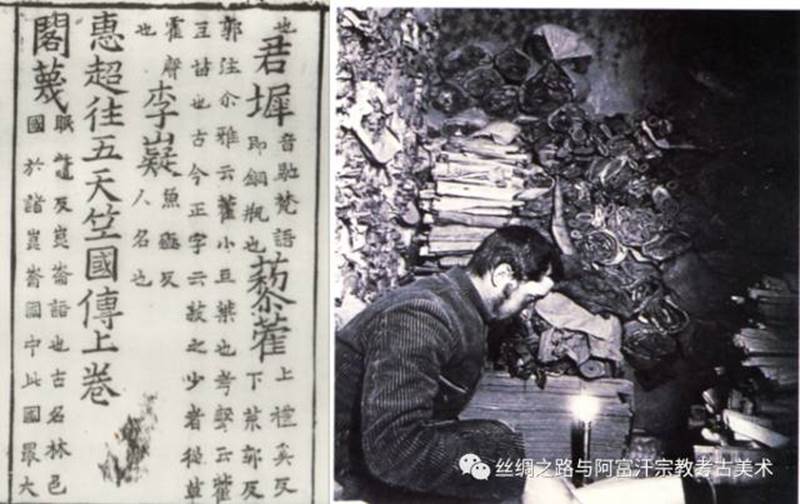 也君墀音馳梵語即銅瓶也藜藿上禮奚反下荒郭反
郭注尒雅云藿小豆葉也考聲云藿豆苗也古今正字云菽之少者從草
霍聲也李嶷魚反人名也
惠超往五天竺國傳上卷
閣蔑眠反崑崙語也古名林邑國於諸崑崙國中此國最大
丝绸之路与阿富汗宗教考古美术